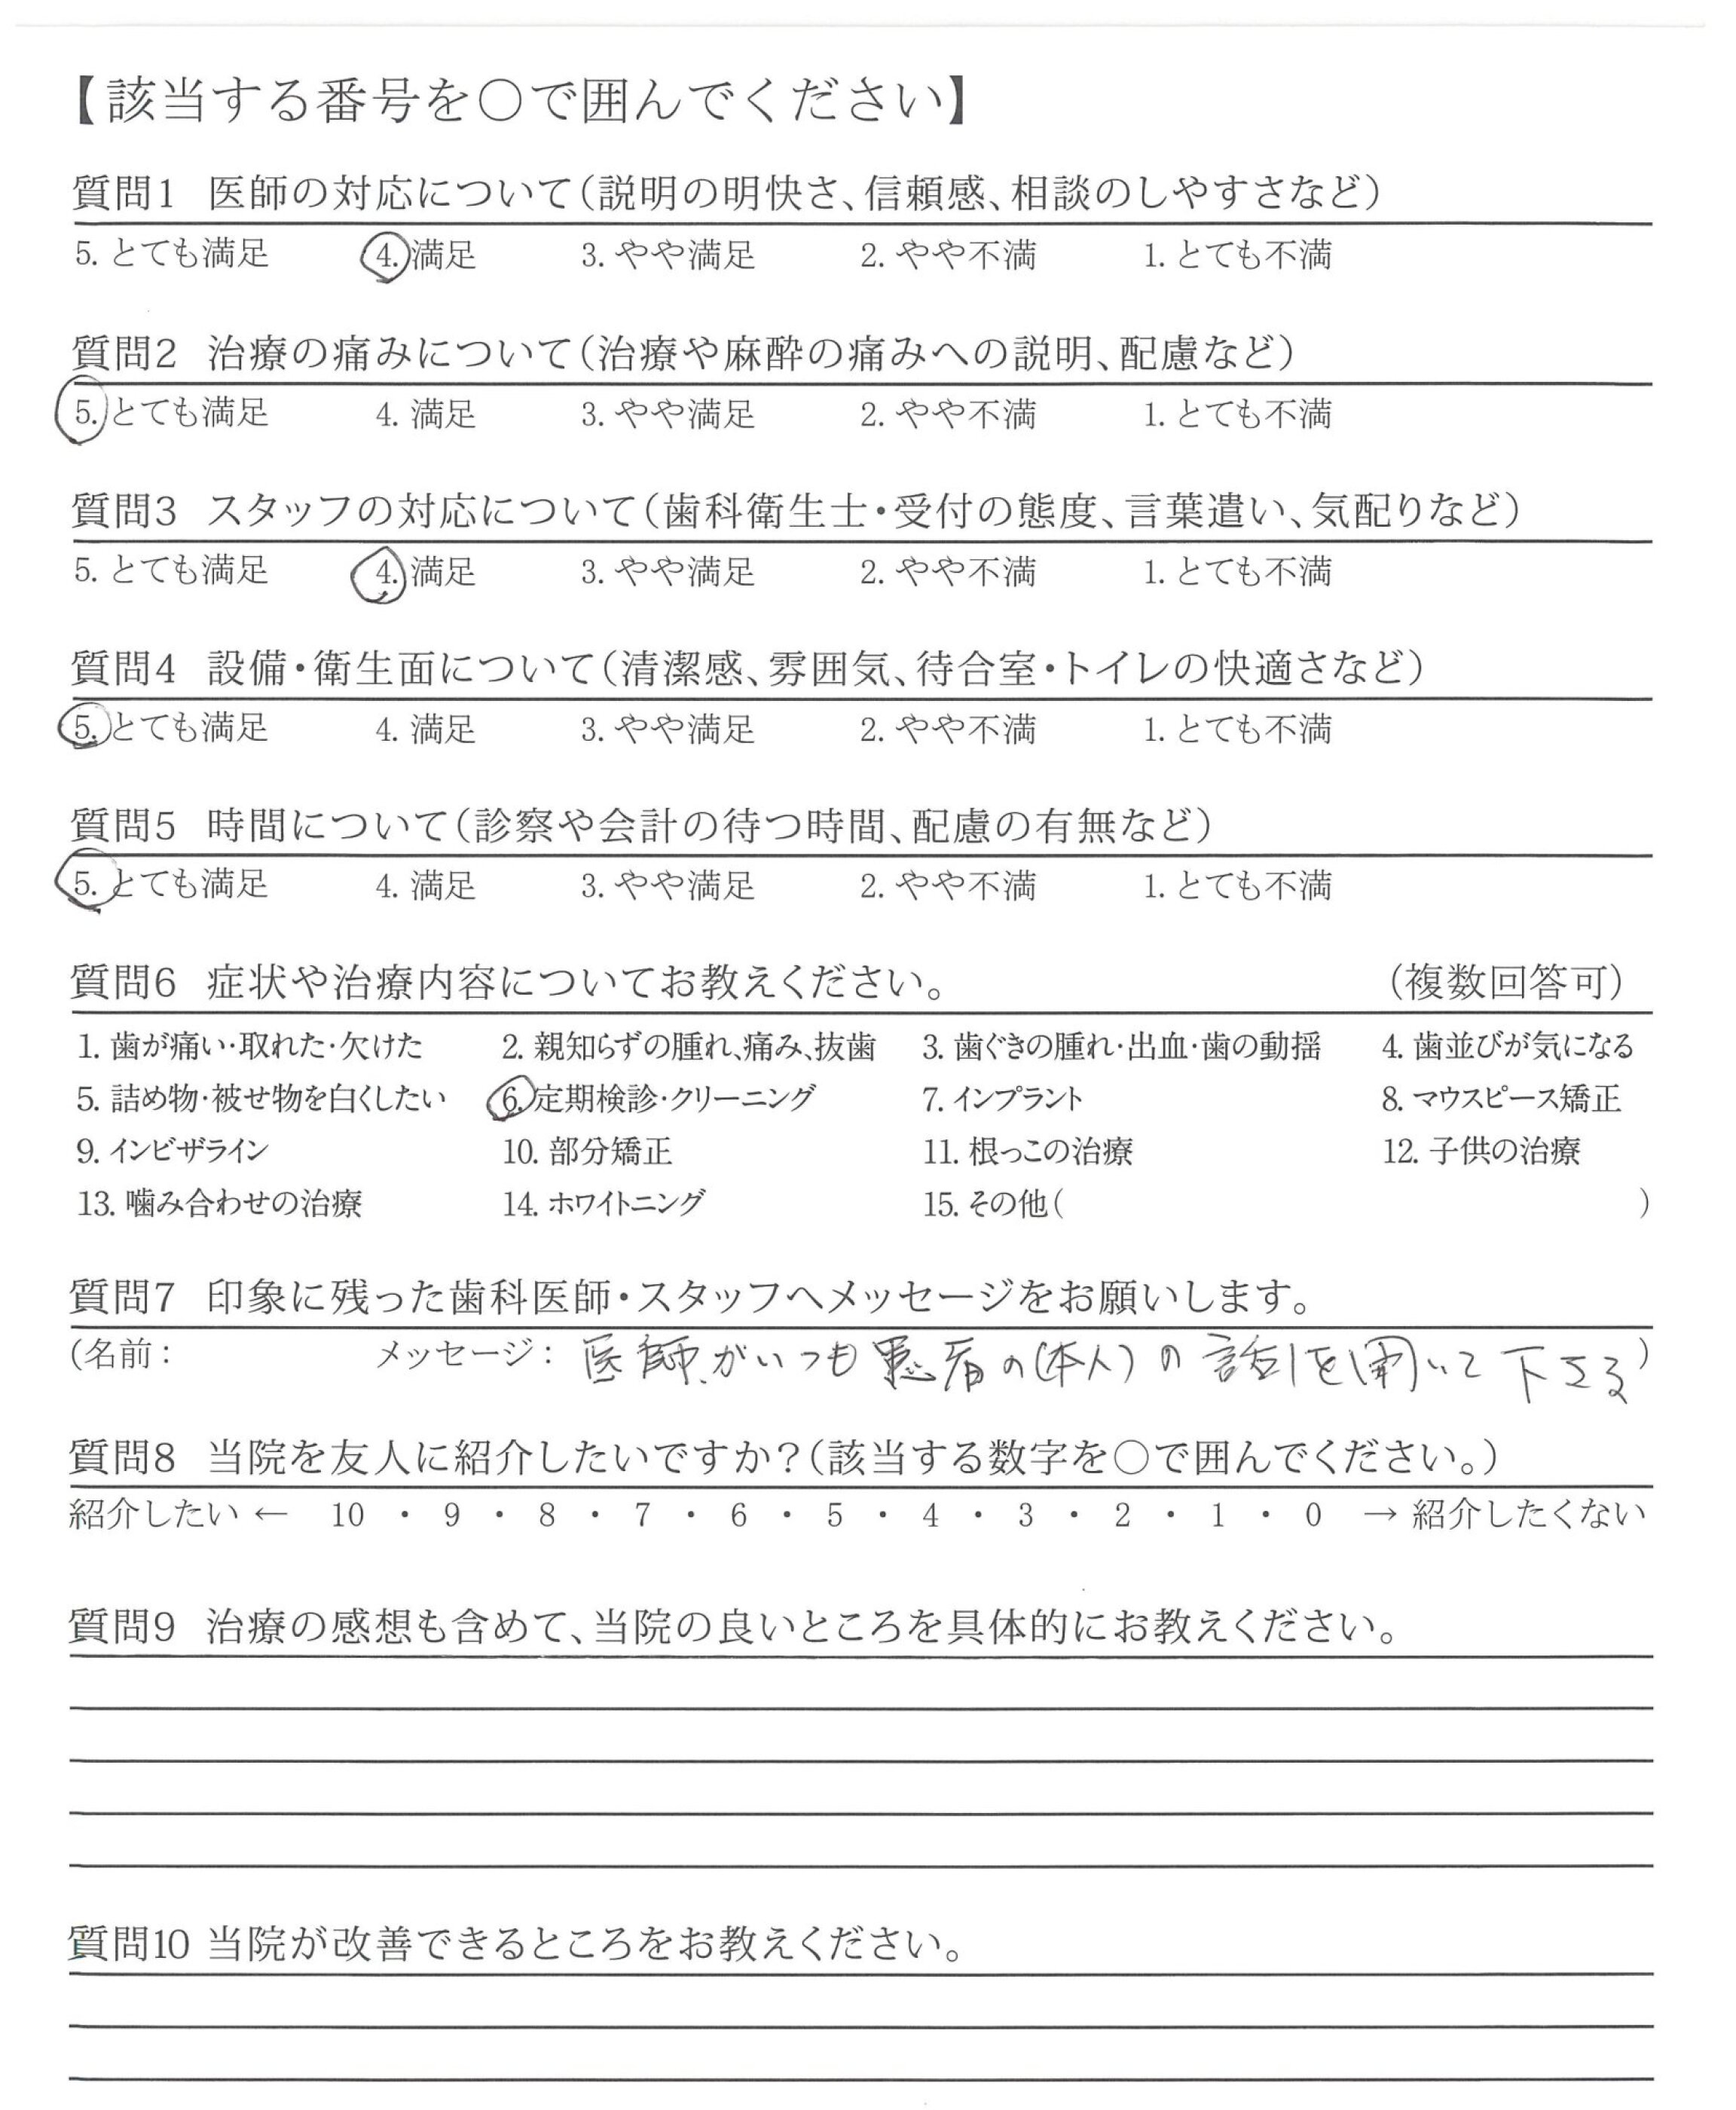 【該当する番号を○で囲んでください】
質問1 医師の対応について(説明の明快さ、信頼感、相談のしやすさなど)
5. とても満足 4. 満足 3. やや満足 2. やや不満 1. とても不満
質問2 治療の痛みについて(治療や麻酔の痛みへの説明、配慮など)
5. とても満足 4. 満足 3. やや満足 2. やや不満 1. とても不満
質問3 スタッフの対応について(歯科衛生士・受付の態度、言葉遣い、気配りなど)
5. とても満足 4. 満足 3. やや満足 2. やや不満 1. とても不満
質問4 設備・衛生面について(清潔感、雰囲気、待合室・トイレの快適さなど)
5. とても満足 4. 満足 3. やや満足 2. やや不満 1. とても不満
質問5 時間について(診察や会計の待つ時間、配慮の有無など)
5. とても満足 4. 満足 3. やや満足 2. やや不満 1. とても不満
質問6 症状や治療内容についてお教えください。 (複数回答可)
1. 歯が痛い・取れた・欠けた 2. 親知らずの腫れ、痛み、抜歯 3. 歯ぐきの腫れ・出血・歯の動揺 4. 歯並びが気になる
5. 詰め物・被せ物を白くしたい 6. 定期検診・クリーニング 7. インプラント 8. マウスピース矯正
9. インビザライン 10. 部分矯正 11. 根っこの治療 12. 子供の治療
13. 噛み合わせの治療 14. ホワイトニング 15. その他( )
質問7 印象に残った歯科医師・スタッフへメッセージをお願いします。
(名前: メッセージ: 医師がいつも患者の(本人)の話しを聞いて下さる)
質問8 当院を友人に紹介したいですか?(該当する数字を○で囲んでください。)
紹介したい ← 10 ・ 9 ・ 8 ・ 7 ・ 6 ・ 5 ・ 4 ・ 3 ・ 2 ・ 1 ・ 0 → 紹介したくない
質問9 治療の感想も含めて、当院の良いところを具体的にお教えください。
質問10 当院が改善できるところをお教えください。